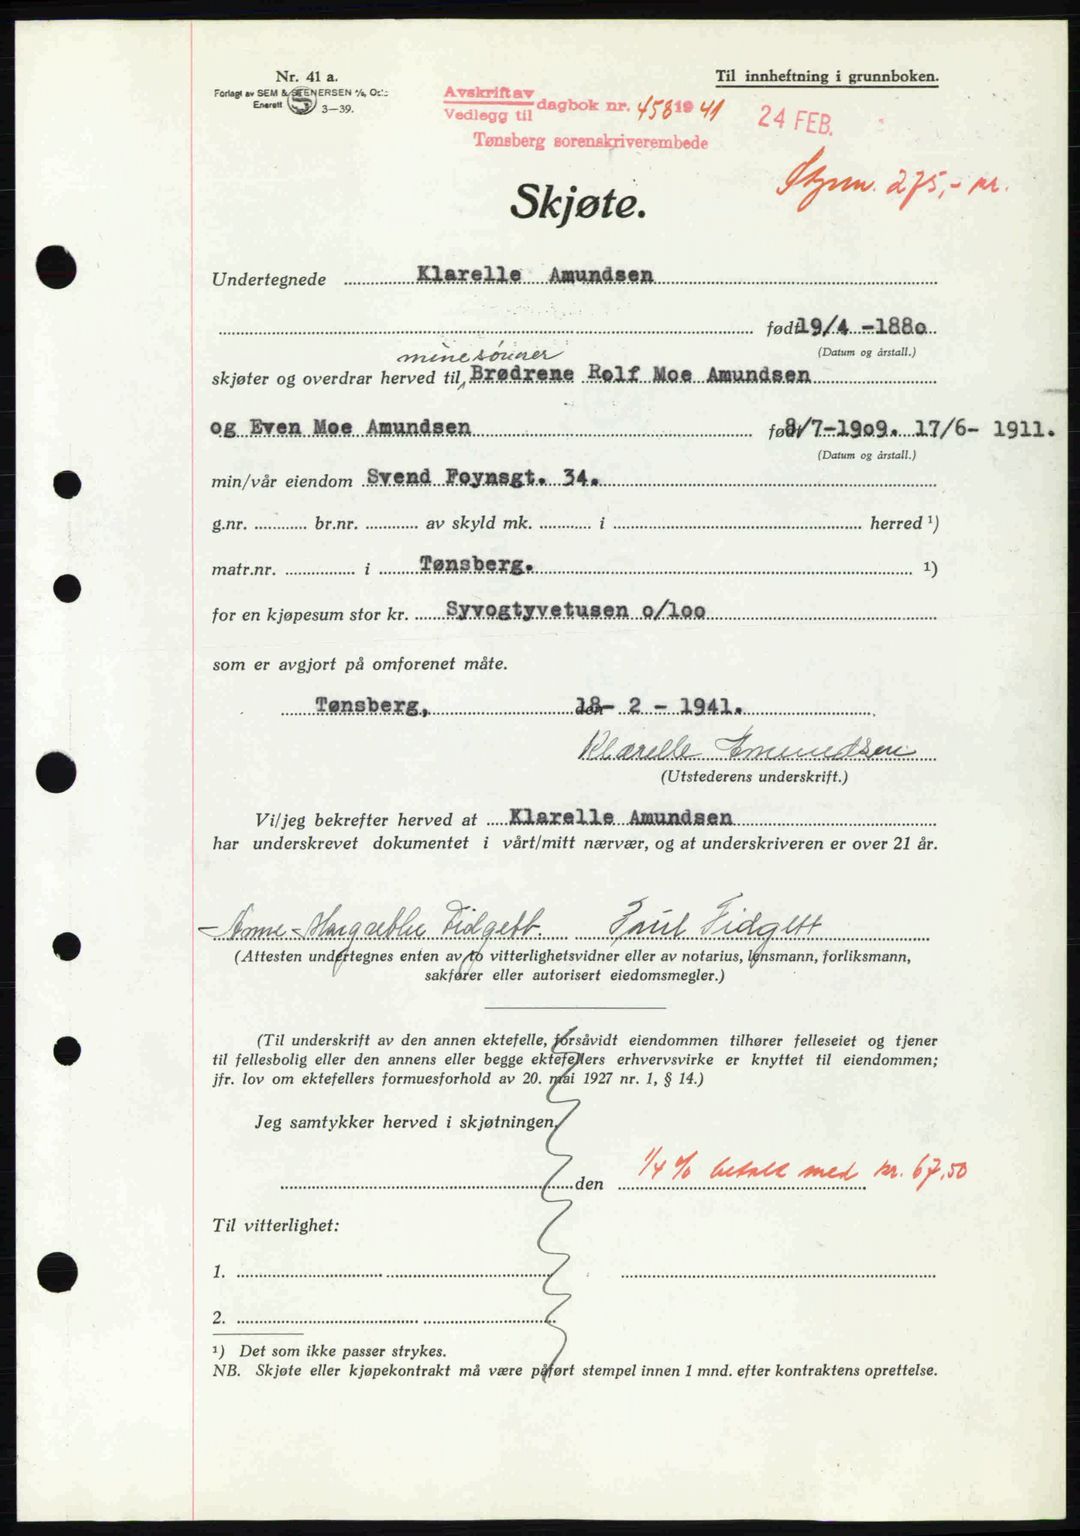 Nr. 41 a.
Forlagt av SEM & STENERSEN A/s, Oslo
Enerett S 3-39.
Til innheftning i grunnboken.
Avskrift av
Vedlegg til dagbok nr. 458 1941
Tønsberg sorenskriverembede
24 FEB.
275,- kr.
Skjøte.
Undertegnede Klarelle Amundsen
født 19/4 -1880
(Datum og årstall.)
mine sønner
skjøter og overdrar herved til Brødrene Rolf Moe Amundsen
og Even Moe Amundsen født 8/7-1909. 17/6- 1911.
(Datum og årstall.)
min/vår eiendom Svend Foynsgt. 34.
g.nr. br.nr. av skyld mk. i herred ¹)
matr.nr. i Tønsberg. ¹)
for en kjøpesum stor kr. Syvogtyvetusen o/loo
som er avgjort på omforenet måte.
Tønsberg, den 18- 2 - 1941.
Klarelle Amundsen
(Utstederens underskrift.)
Vi/jeg bekrefter herved at Klarelle Amundsen
har underskrevet dokumentet i vårt/mitt nærvær, og at underskriveren er over 21 år.
Anne-Margrethe Fidgett. Paul Fidgett
(Attesten undertegnes enten av to vitterlighetsvidner eller av notarius, lensmann, forliksmann,
sakfører eller autorisert eiedomsmegler.)
(Til underskrift av den annen ektefelle, forsåvidt eiendommen tilhører felleseiet og tjener
til fellesbolig eller den annens eller begge ektefellers erhvervsvirke er knyttet til eiendommen;
jfr. lov om ektefellers formuesforhold av 20. mai 1927 nr. 1, § 14.)
Jeg samtykker herved i skjøtningen.
1/4 % betalt med kr. 67,50
den
Til vitterlighet:
1.
2.
¹) Det som ikke passer strykes.
NB. Skjøte eller kjøpekontrakt må være påført stempel innen 1 mnd. efter kontraktens oprettelse.